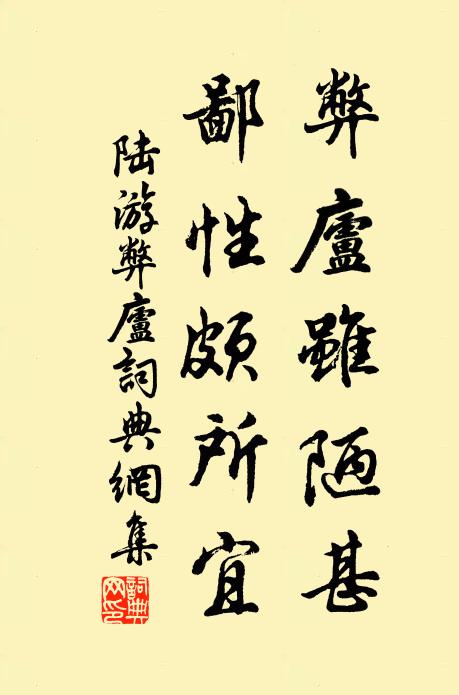 弊廬雖陋甚
鄙性頗所宜
陸游弊廬詞典網集
詞典網印